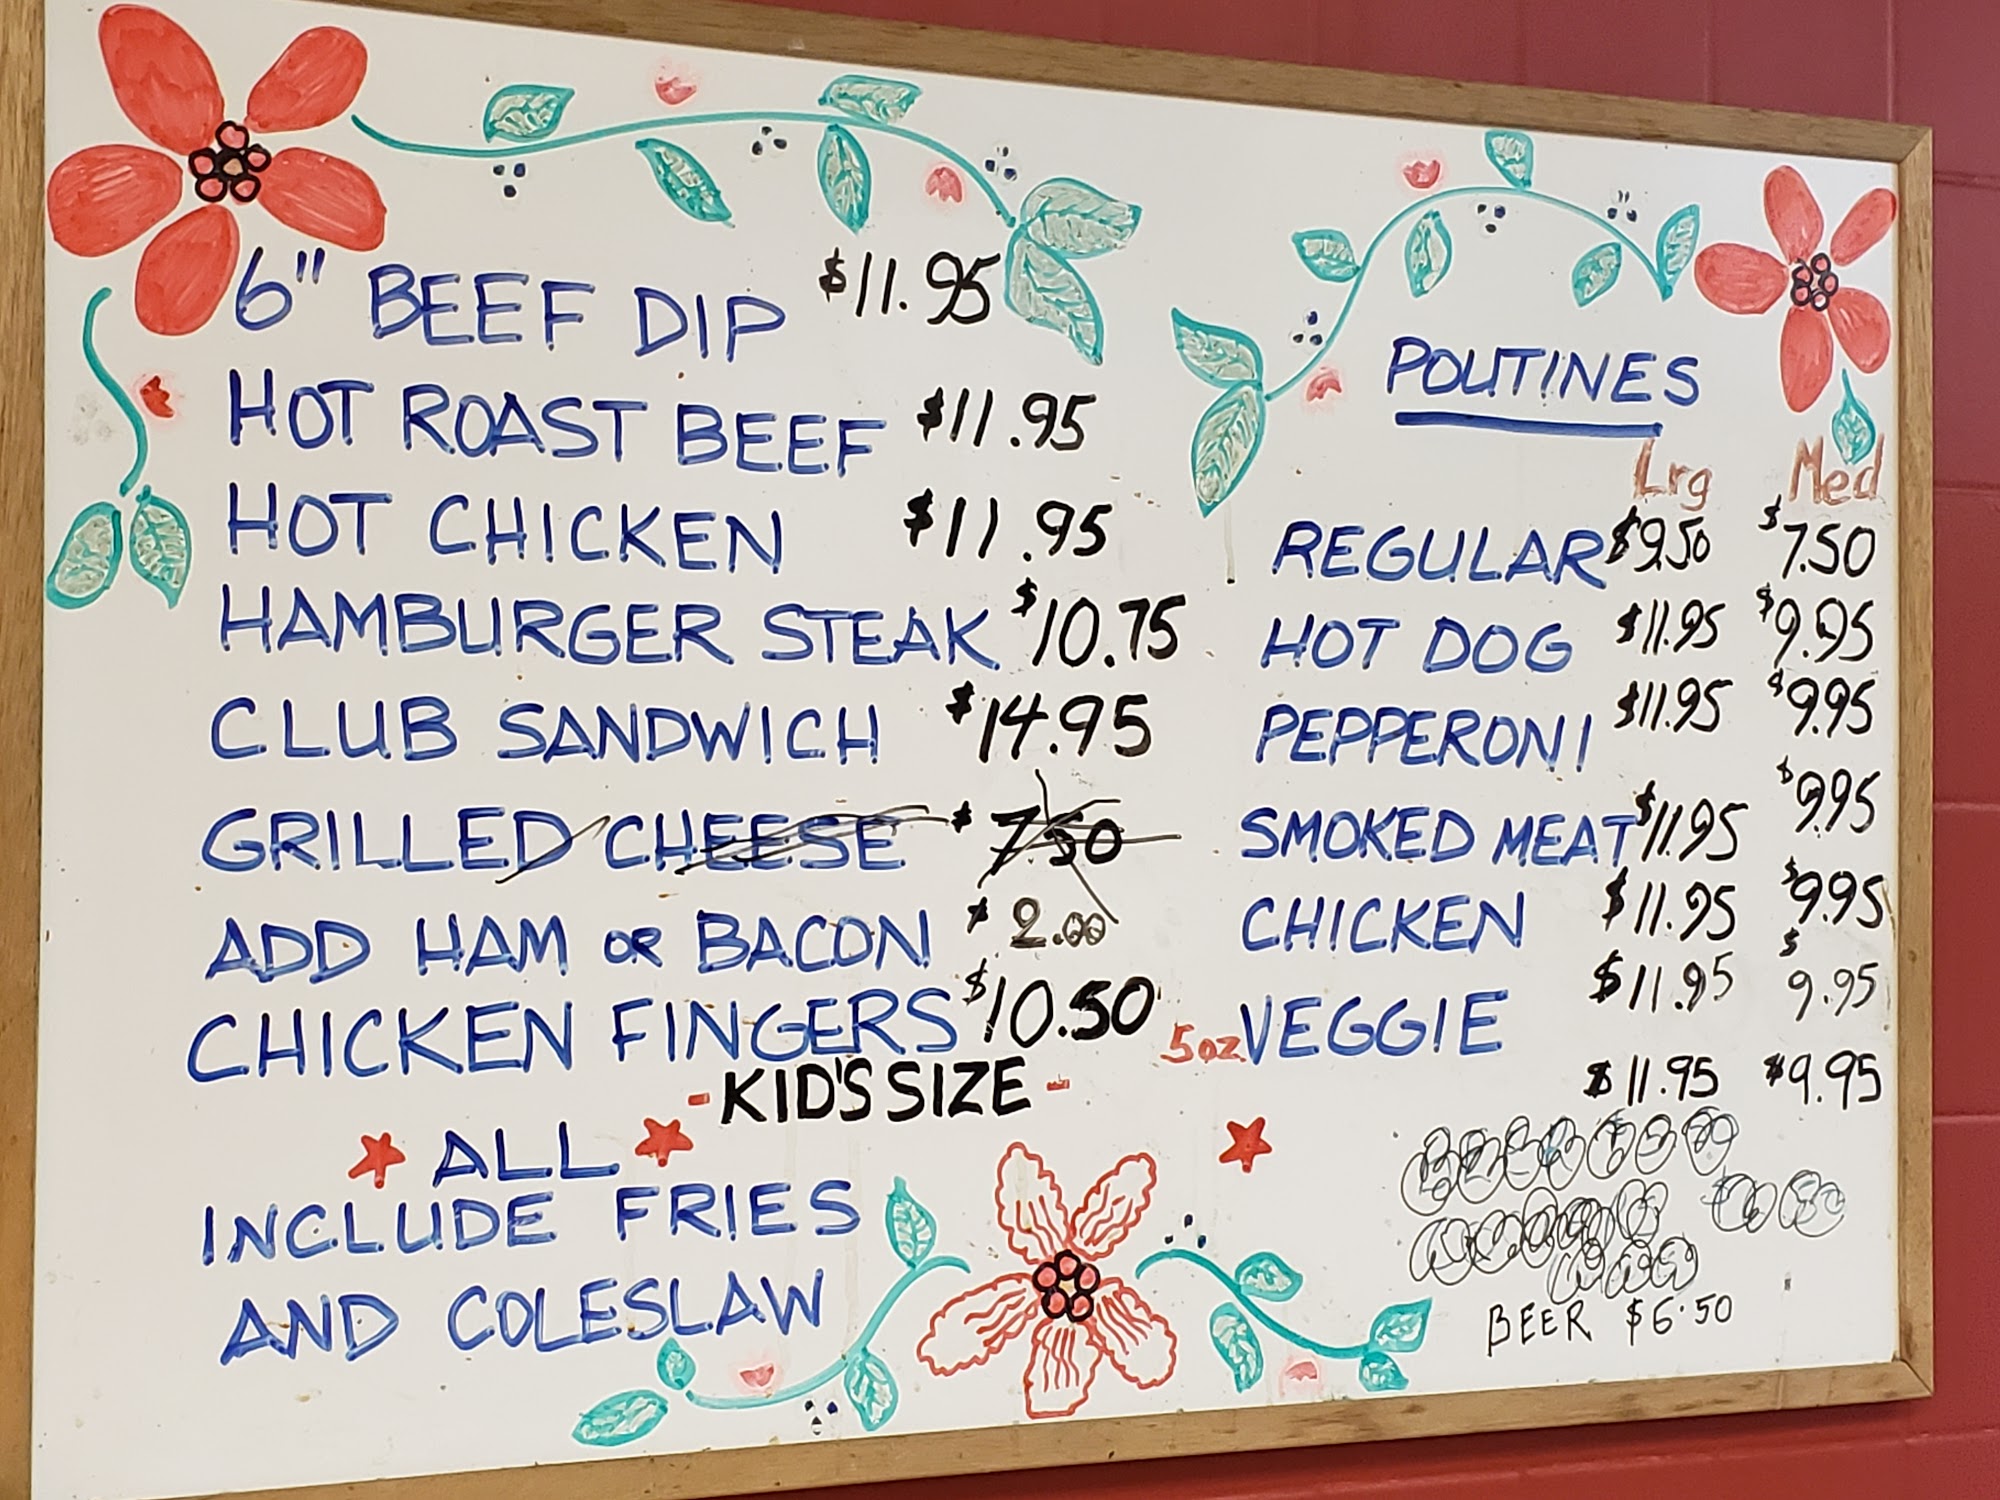 6" BEEF DIP $11.95
HOT ROAST BEEF $11.95
HOT CHICKEN $11.95
HAMBURGER STEAK $10.75
CLUB SANDWICH $14.95
GRILLED CHEESE $7.50
ADD HAM OR BACON $2.00
CHICKEN FINGERS $10.50 5oz.
-KID'S SIZE-
ALL
INCLUDE FRIES
AND COLESLAW
POUTINES
Lrg Med
REGULAR $9.50 $7.50
HOT DOG $11.95 $9.95
PEPPERONI $11.95 $9.95
SMOKED MEAT $11.95 $9.95
CHICKEN $11.95 $9.95
VEGGIE $11.95 $9.95
$11.95 $9.95
BEER $6.50